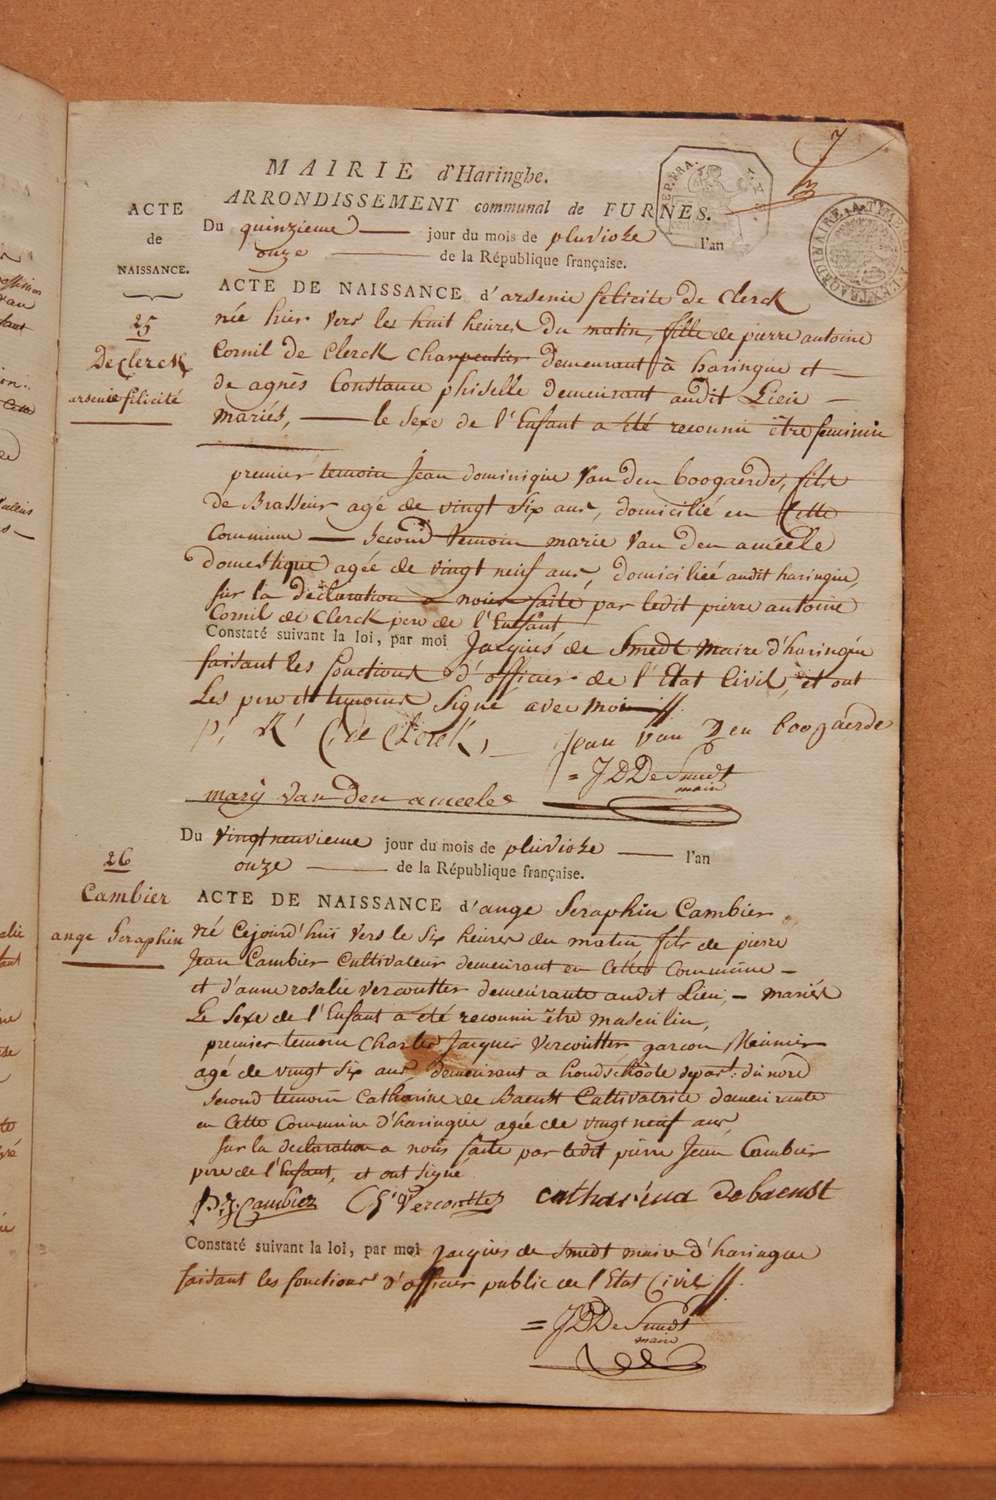 7
MAIRIE d'Haringhe.
ARRONDISSEMENT communal de FURNES.
ACTE
de
NAISSANCE.
Du quinzieme jour du mois de pluviose l'an
onze de la République française.
25
De Clerck
arsenie felicité
ACTE DE NAISSANCE d'arsenie felicite De Clerck
née hier vers les huit heures du matin, fille de pierre antoine
Cornil de Clerck charpentier demeurant à haringue et —
de agnès Constance phiselle demeurant audit Lieu —
mariés, — le sexe de l'Enfant a été reconnu être feminin
premier temoin Jean dominique Van den boogaerde, fils
de Brasseur agé de vingt six ans, domicilié en Cette
Commune — second temoin marie Van Den ameele
domestique agée de vingt neuf ans, domiciliée audit haringue,
sur la declaration a nous faite par ledit pierre antoine
Cornil de Clerck pere de l'Enfant
Constaté suivant la loi, par moi Jacques de Smedt Maire d'haringue
faisant les fonctions d'officier de l'Etat Civil, et ont
Les pere et temoins signé avec moi
Jean van Den boogaerde
= J D De Smedt
maire
marij van den ameele
Du vingt neuvieme jour du mois de pluviose — l'an
onze de la République française.
26
Cambier
ange Seraphin
ACTE DE NAISSANCE d'ange Seraphin Cambier
né Cejourd'huï vers le six heures du matin fils de pierre
Jean Cambier Cultivateur demeurant en Cette Commune —
et d'anne rosalie vercoutter demeurante audit Lieu, — mariés
Le Sexe de l'Enfant a été reconnu être masculin,
premier temoin Charles Jacques Vercoutter garçon Meunier
agé de vingt six ans demeurant a hondschoote depart: du nord
second temoin Catharine de Baenst Cultivatrite demeurante
en Cette Commune d'haringue agée de vingt neuf ans,
sur la declaration a nous faite par ledit pierre Jean Cambier
pere de l'Enfant, et ont signé
P. J. Cambier Ch. Vercoutter catharina debaenst
Constaté suivant la loi, par moi Jacques de Smedt maire d'haringue
faisant les fonctions d'officier public de l'Etat Civil
= J D De Smedt
maire